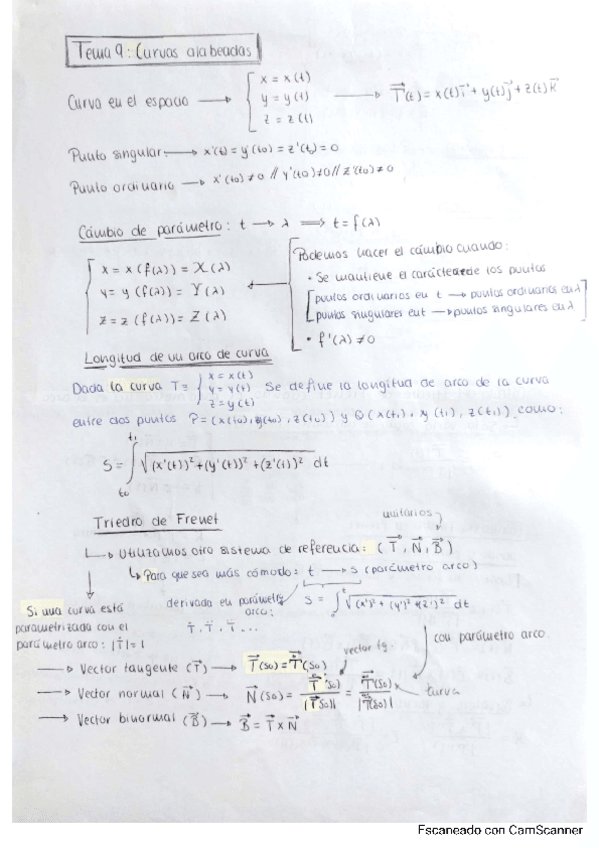 Tema 9: Curvas alabeadas
Curva en el espacio → { x = x(t)
y = y(t)
z = z(t)
→ T⃗(t) = x(t)i⃗ + y(t)j⃗ + z(t)k⃗
Punto singular → x'(t₀) = y'(t₀) = z'(t₀) = 0
Punto ordinario → x'(t₀) ≠ 0 // y'(t₀) ≠ 0 // z'(t₀) ≠ 0
Cámbio de parámetro: t → λ ⟹ t = f(λ)
Podemos hacer el cámbio cuando:
• Se mantiene el carácter de los puntos
[puntos ordinarios en t → puntos ordinarios en λ
puntos singulares en t → puntos singulares en λ]
• f'(λ) ≠ 0
x = x(f(λ)) = X(λ)
y = y(f(λ)) = Y(λ)
z = z(f(λ)) = Z(λ)
Longitud de un arco de curva
Dada la curva T ≡ { x = x(t)
y = y(t)
z = y(t)
Se define la longitud de arco de la curva
entre dos puntos P = (x(t₀), y(t₀), z(t₀)) y Q(x(t₁), y(t₁), z(t₁)) como:
S = ∫ₜ₀^t₁ √((x'(t))² + (y'(t))² + (z'(t))²) dt
Triedro de Frenet
unitarios
↳ Utilizamos otro sistema de referencia: (T⃗, N⃗, B⃗)
↳ Para que sea más cómodo: t → s (parámetro arco)
S = ∫ₜ₀^t √((x')² + (y')² + (z')²) dt
derivada en parámetro
arco:
Ṫ, T̈, T⃛ ...
Si una curva está
parametrizada con el
parámetro arco: |Ṫ| = 1
con parámetro arco.
vector tg.
→ Vector tangente (T⃗) → T⃗(s₀) = Ṫ⃗(s₀)
→ Vector normal (N⃗) → N⃗(s₀) = Ṫ⃗(s₀) / |Ṫ⃗(s₀)| = T̈⃗(s₀) / |T̈⃗(s₀)|
curva
→ Vector binormal (B⃗) → B⃗ = T⃗ × N⃗
Escaneado con CamScanner